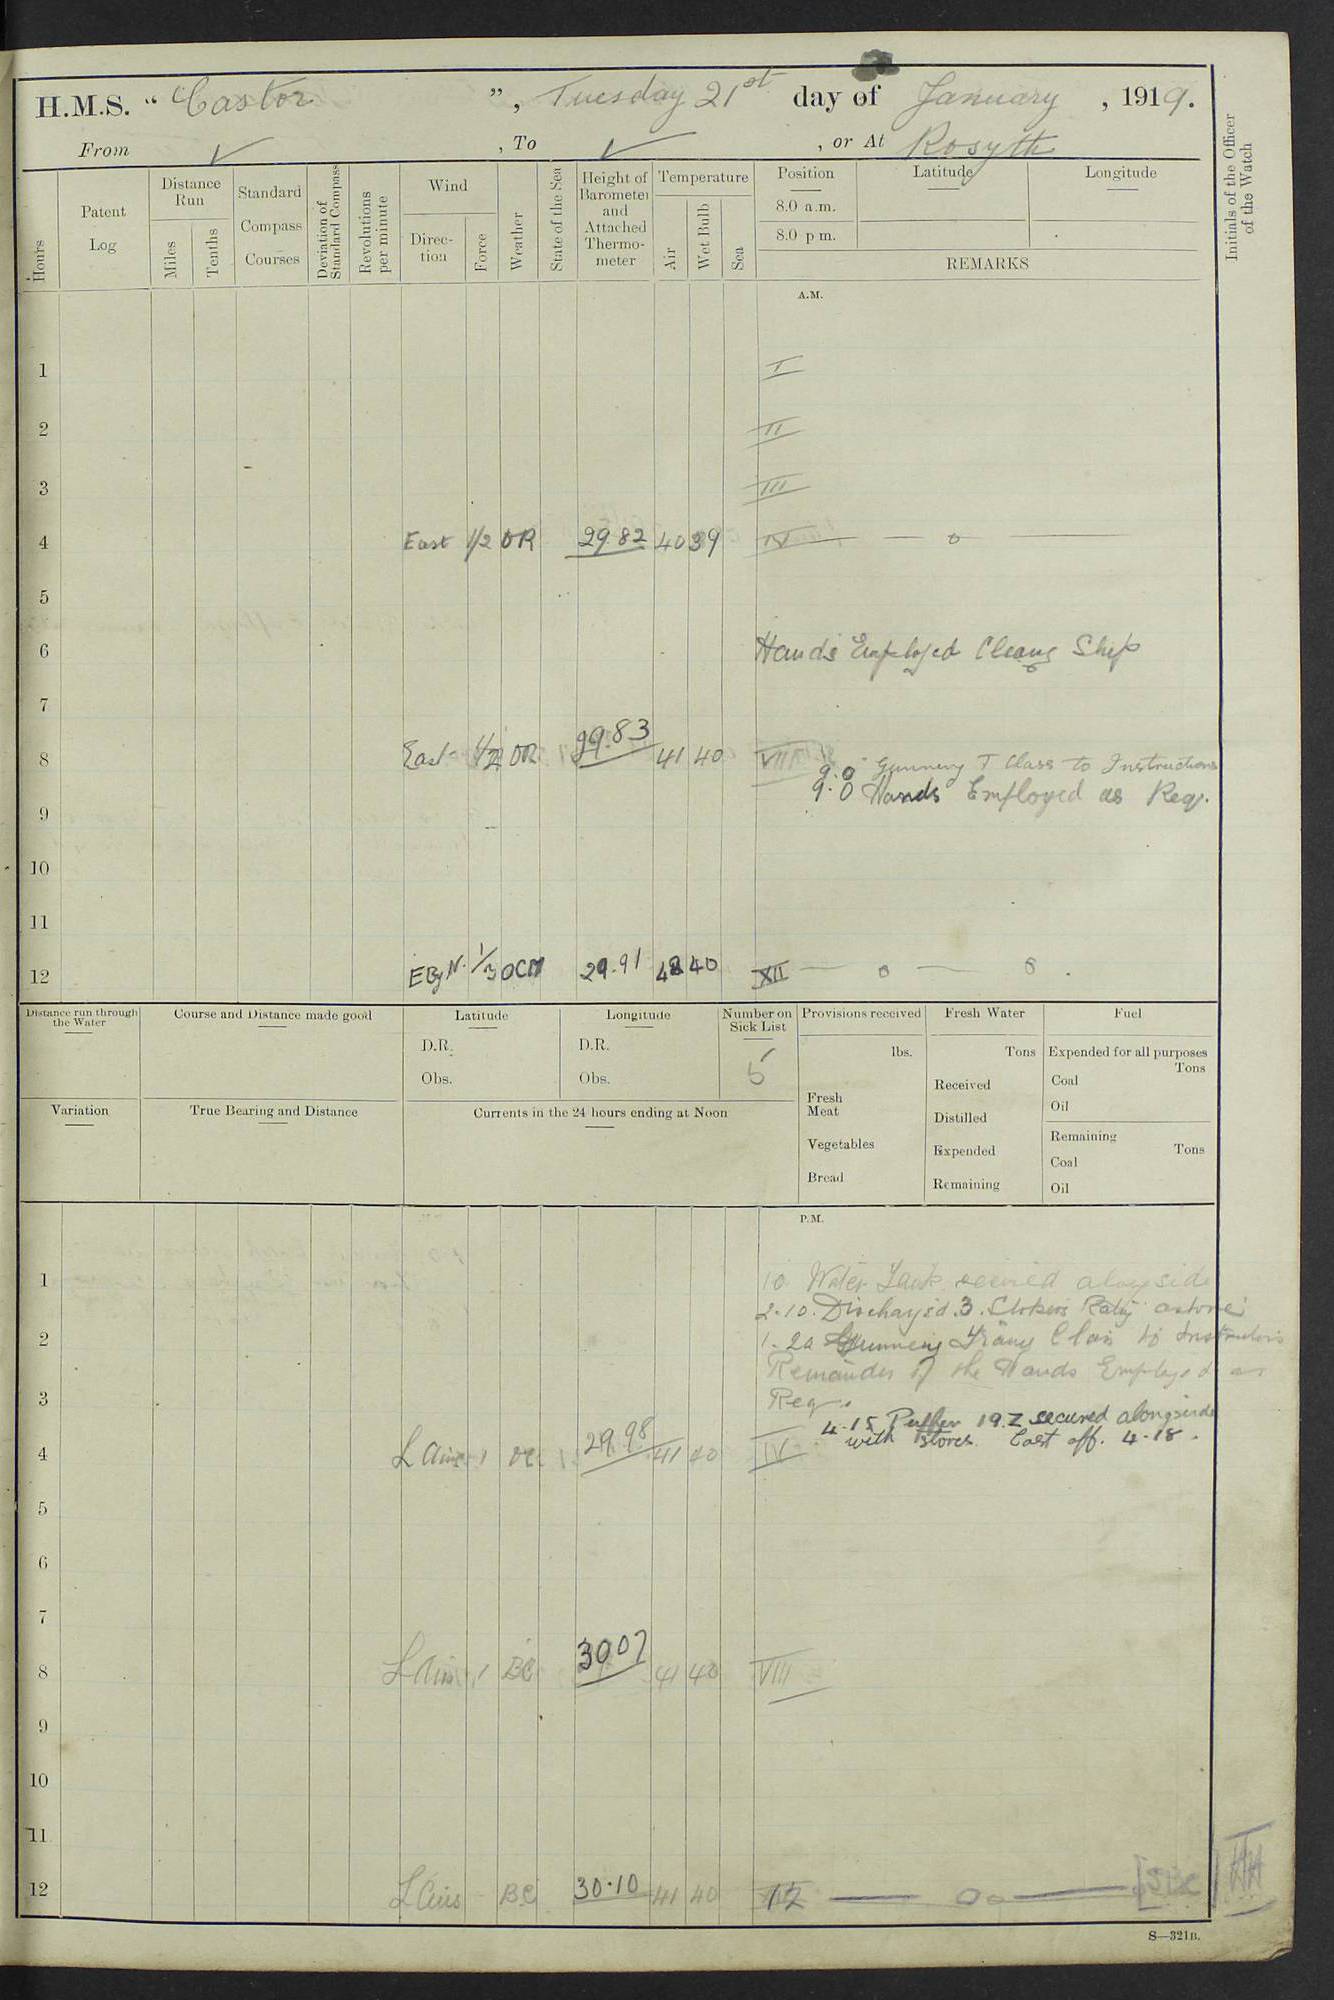 H.M.S. "Castor", Tuesday 21st day of January, 1919.
From ✓, To ✓, or At Rosyth
Hours
Patent Log
Distance Run
Miles
Tenths
Standard Compass Courses
Deviation of Standard Compass
Revolutions per minute
Wind
Direction
Force
Weather
State of the Sea
Height of Barometer and Attached Thermometer
Temperature
Air
Wet Bulb
Sea
Position
8.0 a.m.
8.0 p.m.
Latitude
Longitude
REMARKS
Initials of the Officer of the Watch
A.M.
1 I
2 II
3 III
4 East 1/2 OR 29.82 40 39 IV
5
6 Hands Employed Cleang Ship
7
8 East 1/2 OR 29.83 41 40 VIII
9.0 Gunnery T Class to Instructions
9.0 Hands Employed as Req.
9
10
11
12 E By N. 1/3 OCM 29.91 42 40 XII
Distance run through the Water
Course and Distance made good
Latitude
D.R.
Obs.
Longitude
D.R.
Obs.
Number on Sick List
5
Provisions received
lbs.
Fresh Meat
Vegetables
Bread
Fresh Water
Tons
Received
Distilled
Expended
Remaining
Fuel
Expended for all purposes
Tons
Coal
Oil
Remaining
Tons
Coal
Oil
Variation
True Bearing and Distance
Currents in the 24 hours ending at Noon
P.M.
1 10 Water Tank secured alongside
2.10. Discharged 3. Stokers Ratg ashore
2 1.20 Gunnery Trang Class to Instructions
Remainder of the Hands Employed as
3 Req.
4.15 Puffer 19.Z secured alongside
with stores. Cast off. 4.18.
4 L Airs 1 OC 29.98 41 40 IV
5
6
7
8 L Airs 1 BC 30.07 41 40 VIII
9
10
11
12 L Airs BC 30.10 41 40 12
S—321B.